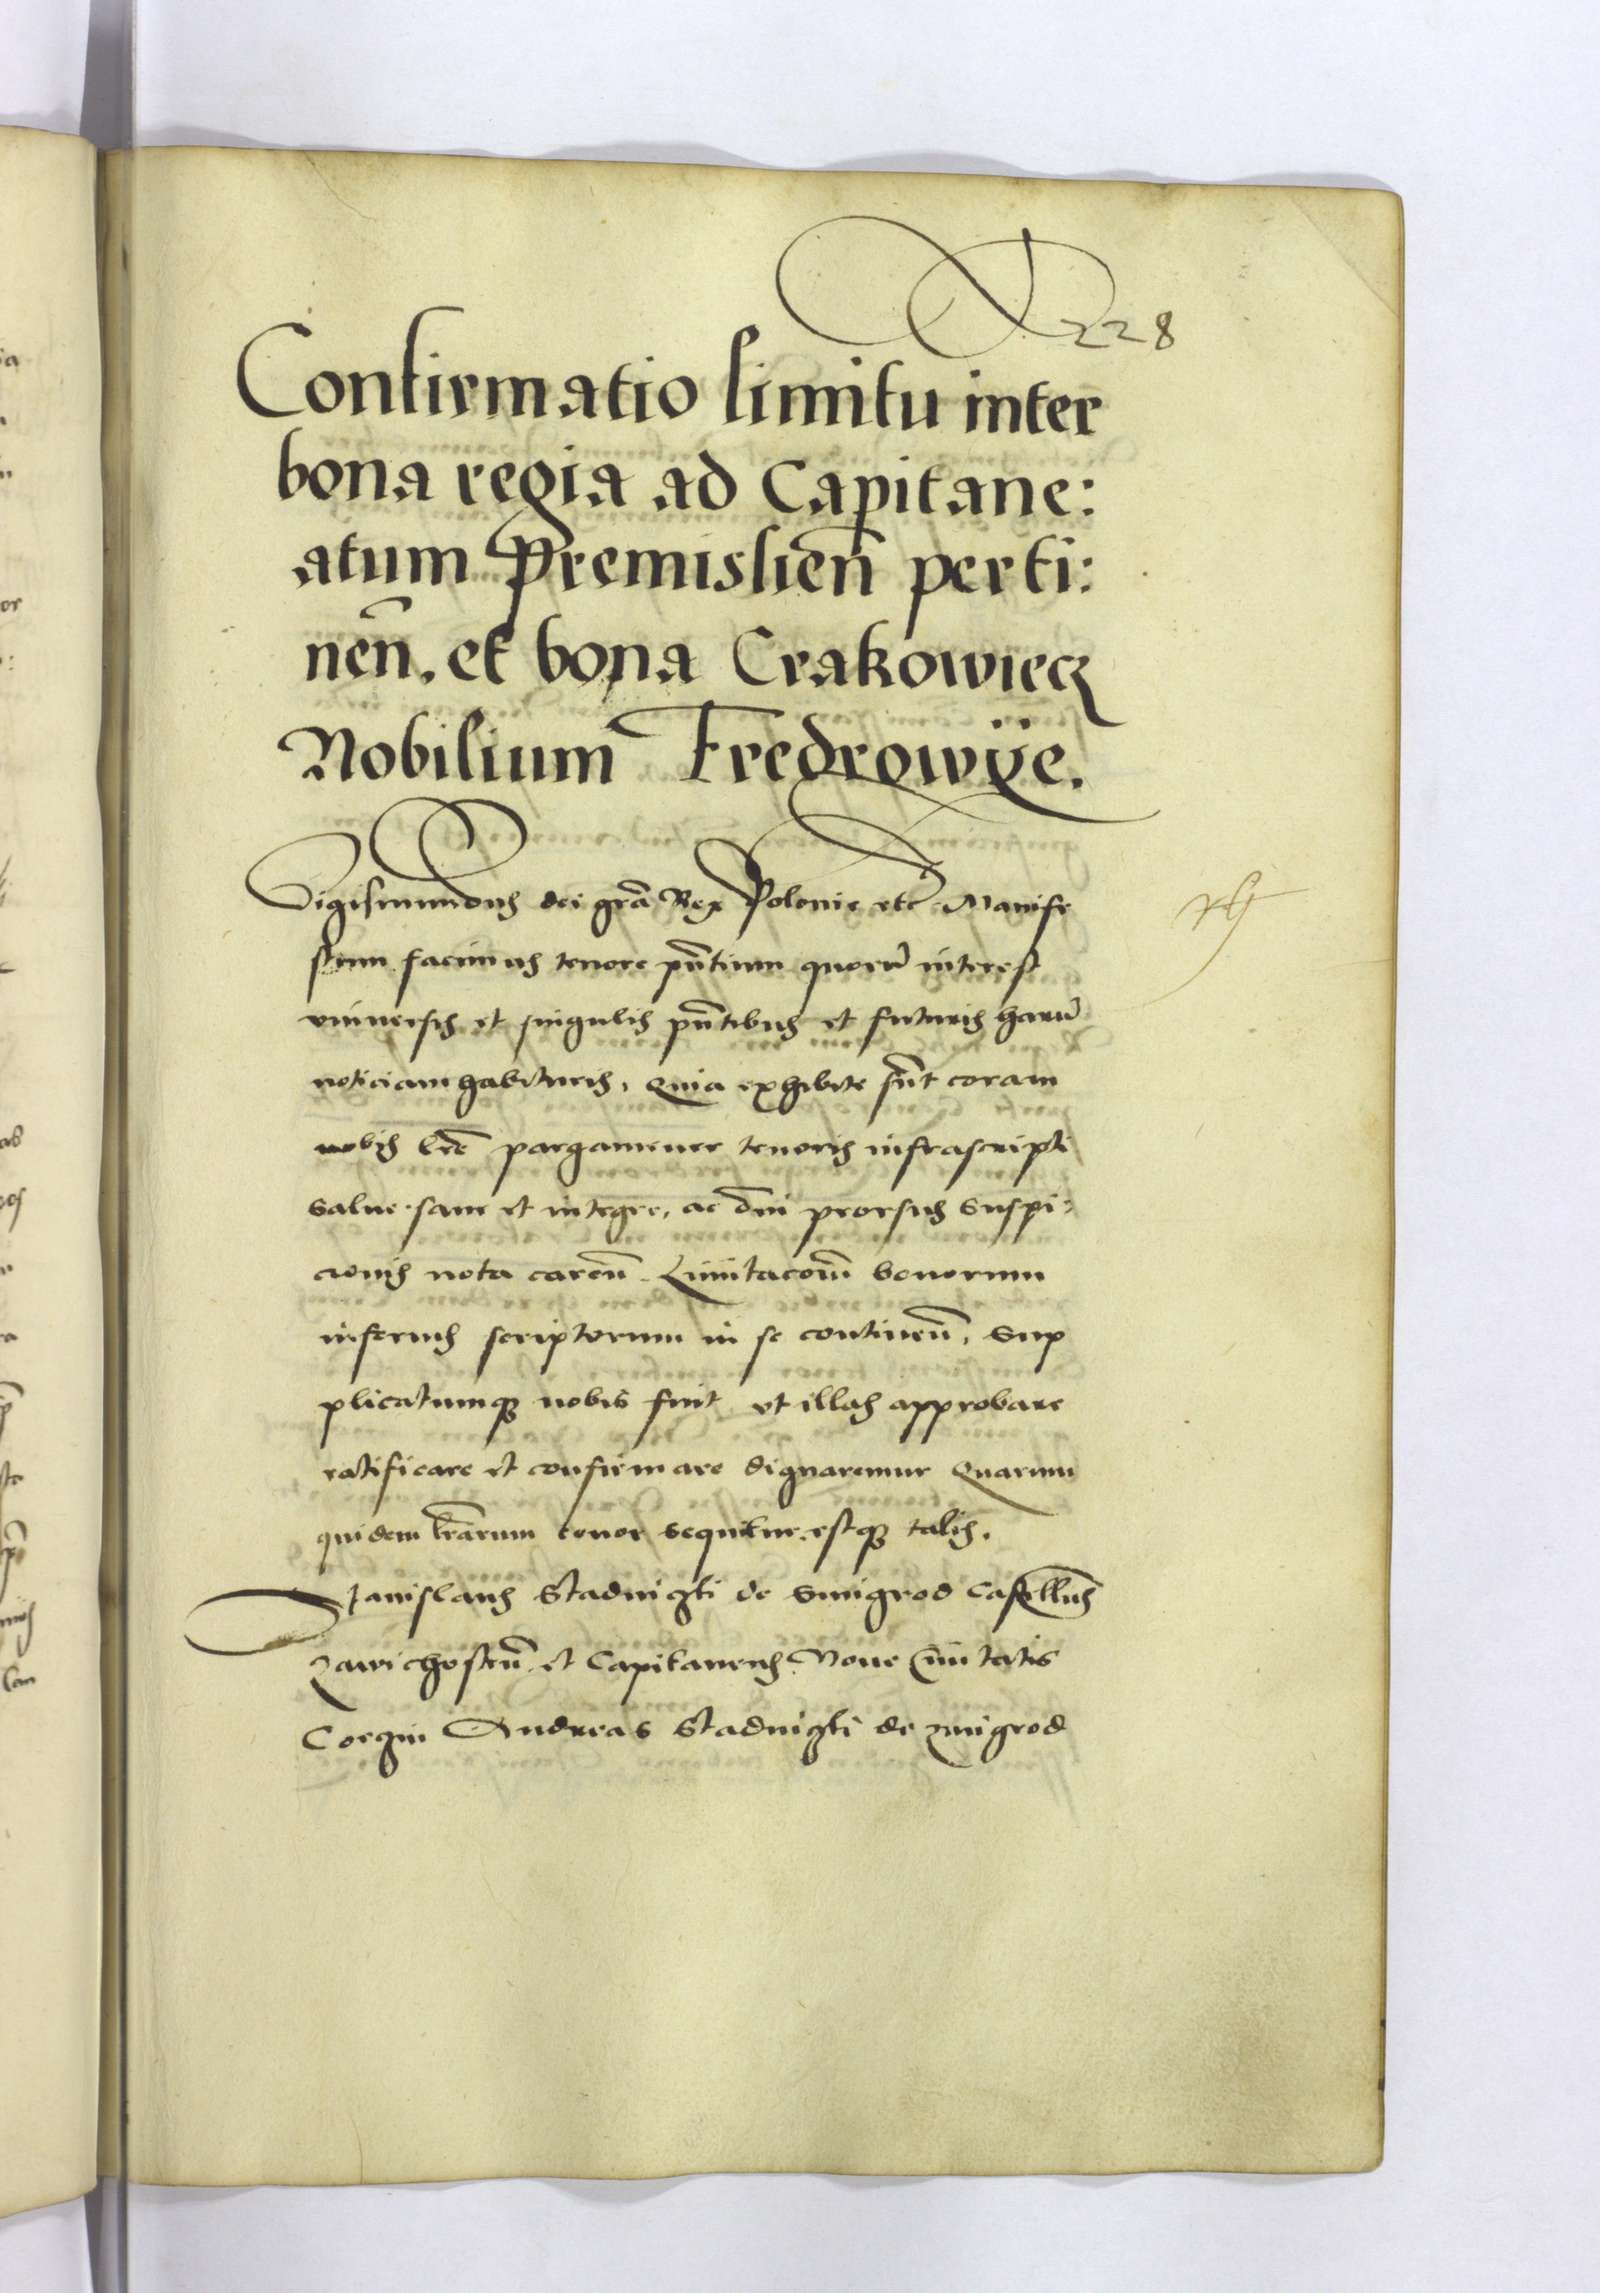 228
Confirmatio limitu inter
bona regia ad Capitane:
atum Premislien̄ perti:
nen̄. et bona Crakowiecz
Nobilium Fredrowije.
Sigismundus dei gr̄a Rex Polonie etc̄ Manife
stum facimus tenore pn̄tium quoru̅ interest
vniuersis et singulis pn̄tibus et futuris haru̅
noticiam habituris, Quia exhibite sūt coram
nobis lr̄e pargamenee tenoris infrascripti
salue sane et integre, ac om̄i prorsus suspi:
cionis nota caren̄ Limitacōm̄ bonorum
inferius scriptorum in se continen̄, Sup
plicatumqꝫ nobis fuit vt illas approbare
ratificare et confirmare dignaremur Quarum
quidem lr̄arum tenor sequitur estqꝫ talis.
Stanislaus Stadnigki de Smigrod Castellns̄
Zawichosten̄ et Capitaneus Noue Ciuitatis
Corgin Andreas Stadnigki de zmigrod